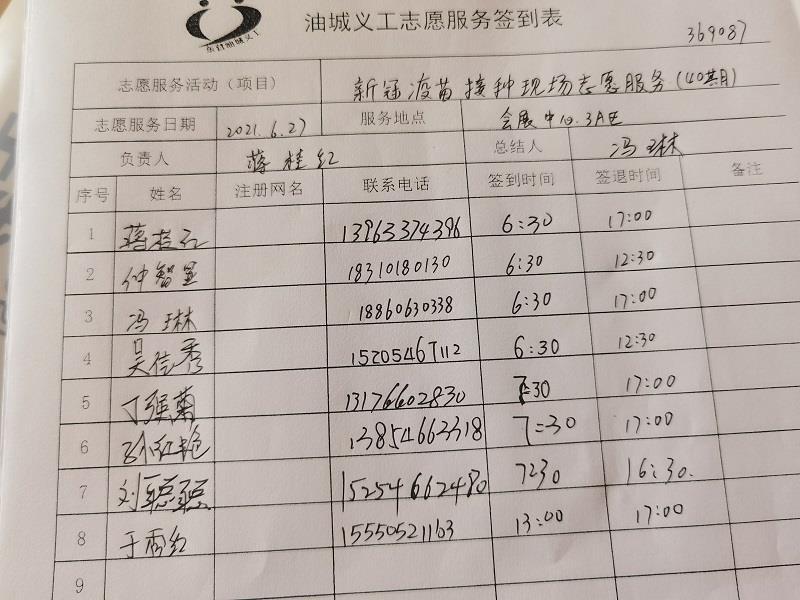 东营油城义工
油城义工志愿服务签到表
369087
志愿服务活动（项目） 新冠疫苗接种现场志愿服务(40期)
志愿服务日期 2021.6.27 服务地点 会展中心.3A区
负责人 蒋桂红 总结人 冯琳
序号 姓名 注册网名 联系电话 签到时间 签退时间 备注
1 蒋桂红 13963374396 6:30 17:00
2 仲智 18310180130 6:30 12:30
3 冯琳 18860630338 6:30 17:00
4 吴佳秀 15205467112 6:30 12:30
5 丁强菊 13176602830 7:30 17:00
6 孙红艳 13854663318 7:30 17:00
7 刘聪聪 15254662480 7:30 16:30.
8 于秀红 15550521163 13:00 17:00
9